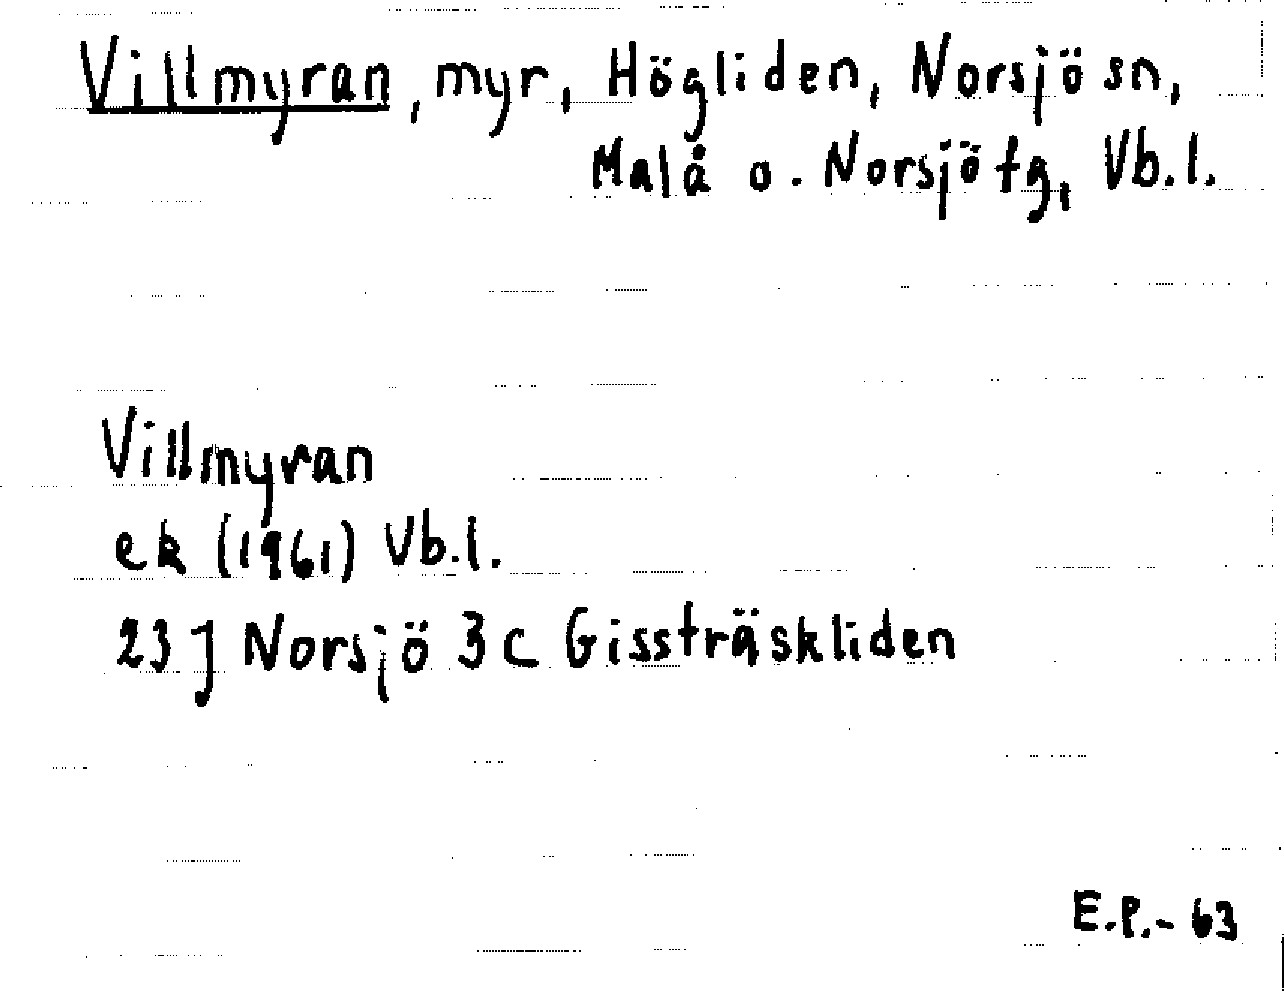 Villmyran, myr, Högliden, Norsjö sn,
Malå o. Norsjö tg, Vb.l.
Villmyran
ek (1961) Vb.l.
23 J Norsjö 3 c Gissträskliden
E.P.- 63